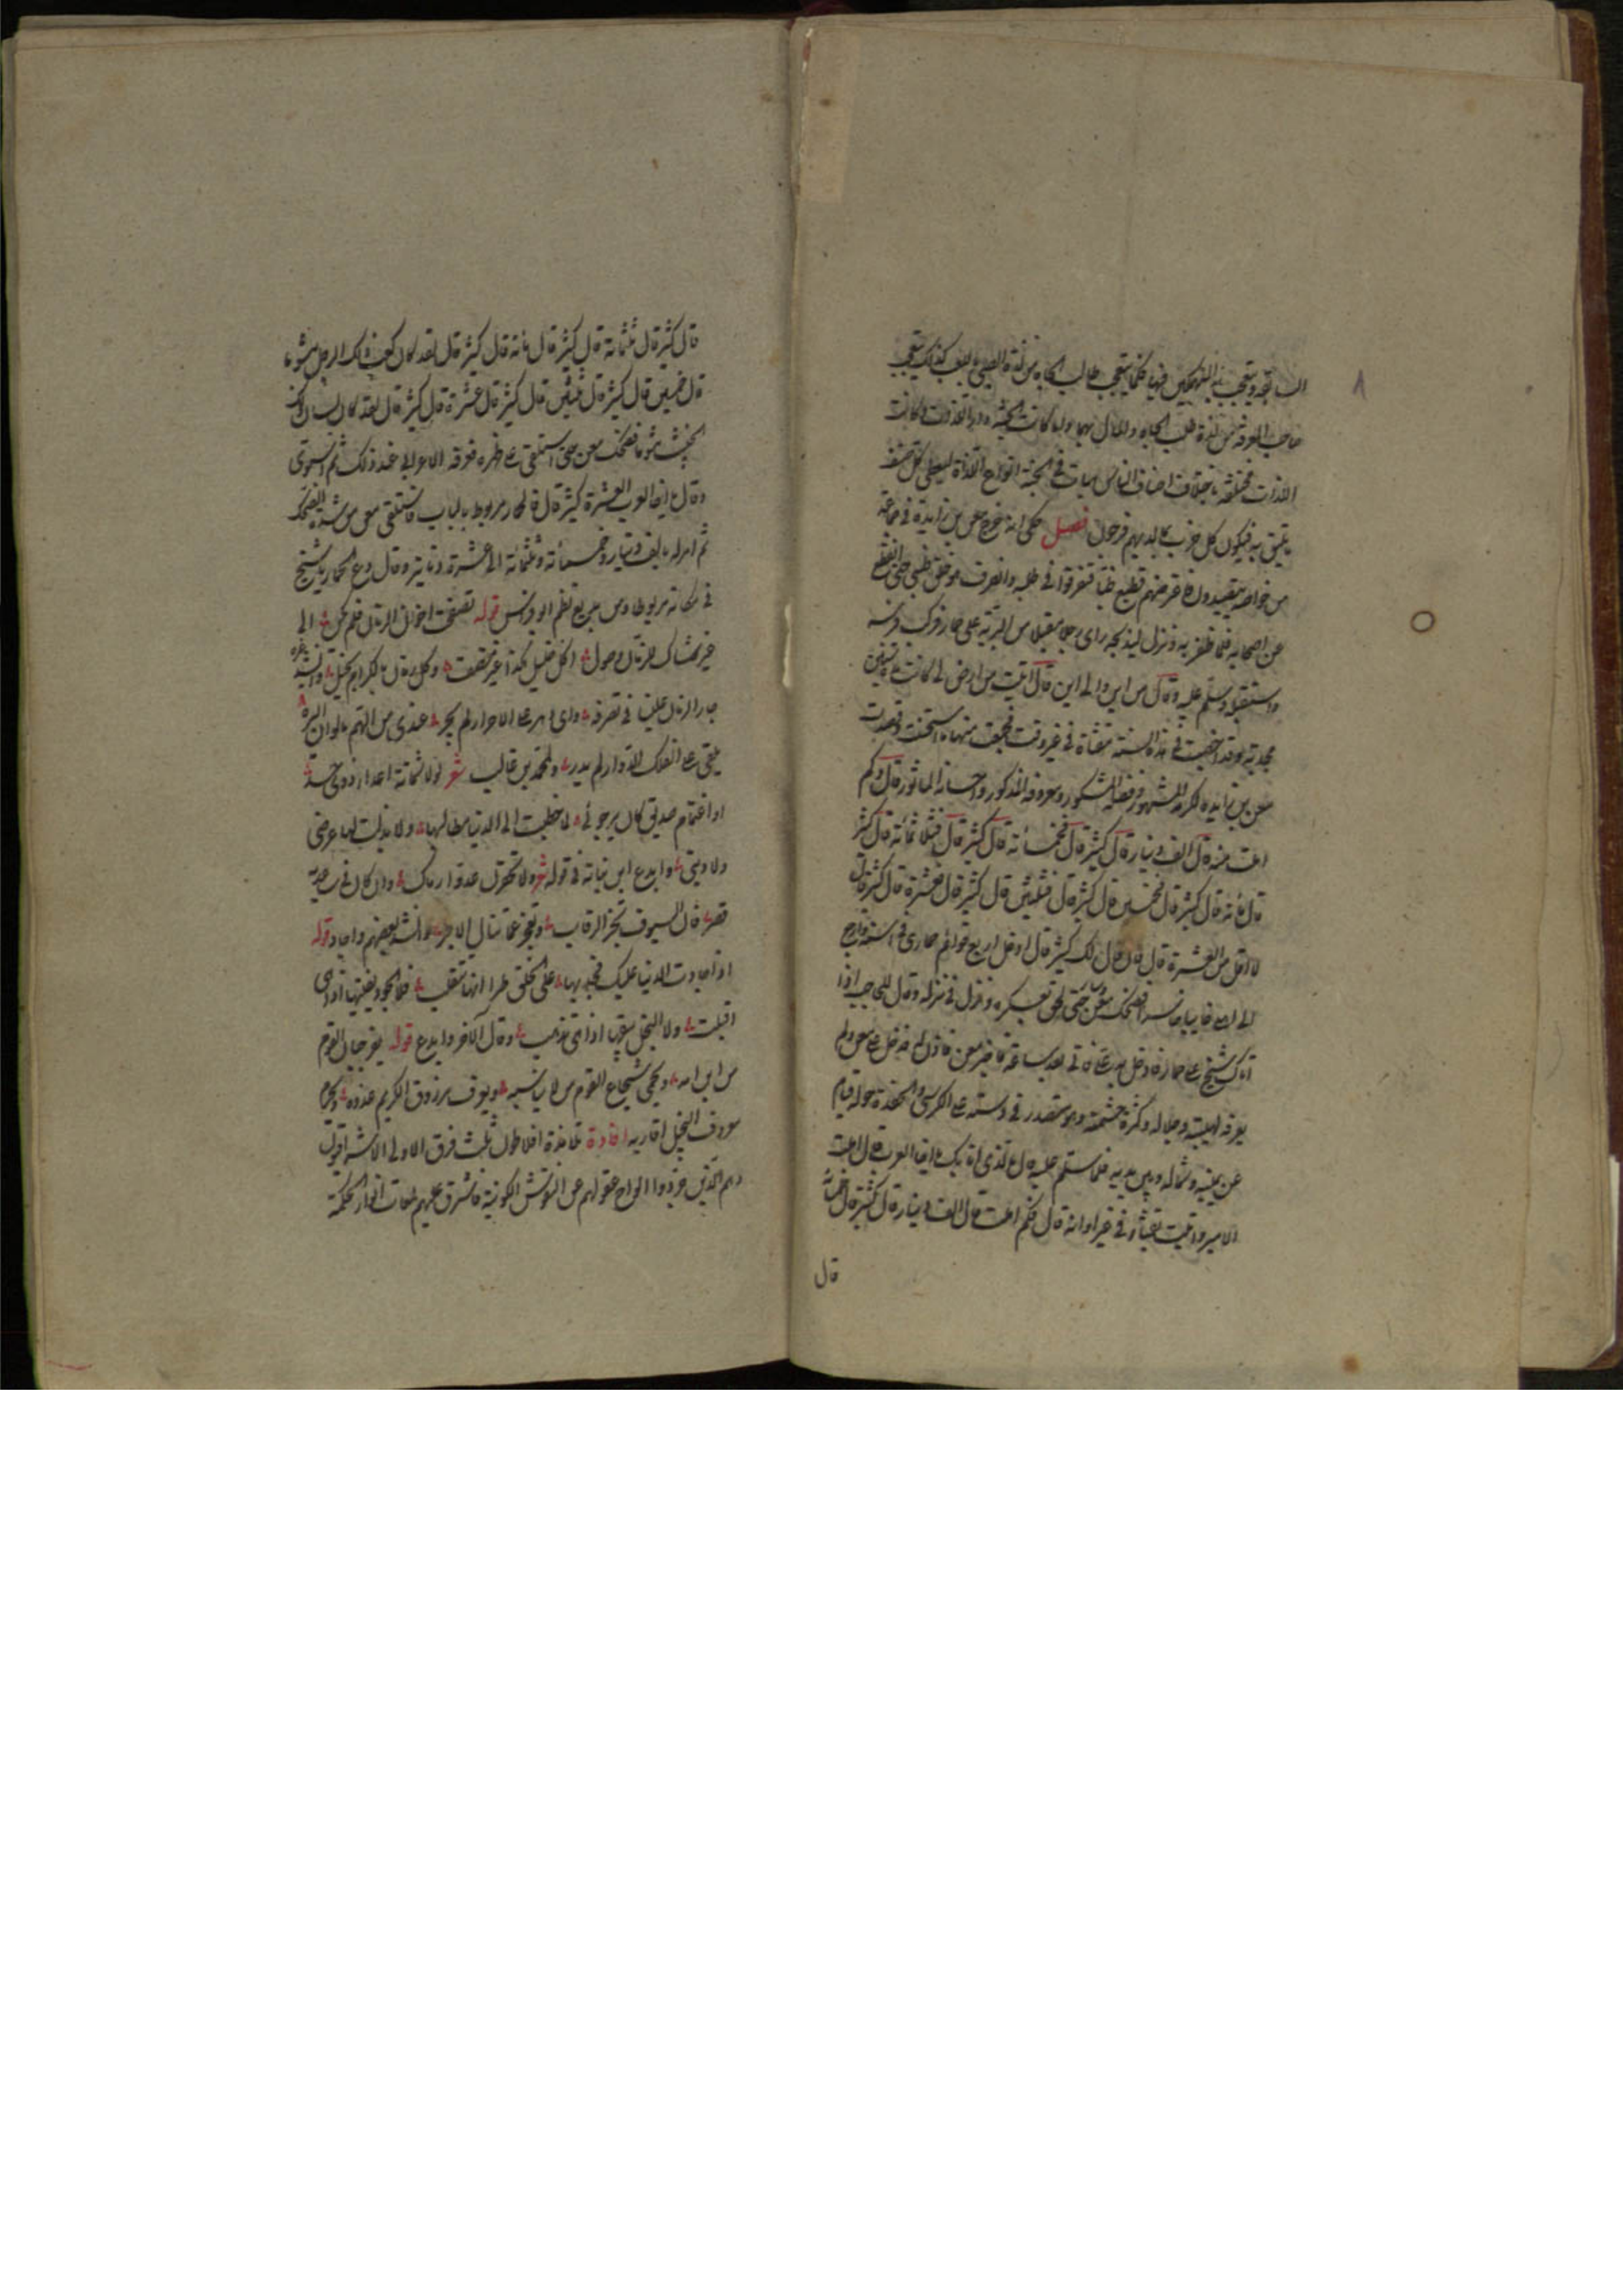 السابقة ويتعجب من المنهمكين فيها كما يتعجب طالب الجاه من لذة الصبي باللعب كذلك يتعجب
صاحب المعرفة من لذة طلب الجاه والمال بهما ولما كانت الجنة دار اللذات وكانت
اللذات مختلفة باختلاف اصناف الناس في الجنة انواع اللذات ليعطى كل صنف
ما يليق به فيكون كل حزب بما لديهم فرحون فصل حكى انه خرج معن بن زايدة في جماعة
من خواصه يتصيدون فاعترضهم قطيع ظبا فتفرقوا في طلبه وانفرد معن خلف ظبي حتى انقطع
عن اصحابه فلما ظفر به ونزل ليذبحه راى رجلا مقبلا من البرية على حمار فركب فرسه
واستقبله وسلم عليه وقال من اين والى اين قال اتيت من ارض لي كانت سنين
مجدبة وقد اخصبت في هذه السنة مقثاة في غير وقت فجمعت منها ما استحسنت وقصدت
معن بن زايده لكرمه المشهور وفضله المشكور ومعروفه المذكور واحسانه الماثور قال وكم
املت منه قال الف دينار قال كثير قال فخمسائة قال كثير قال فثلاثمائة قال كثير
قال مائة قال كثير قال فخمسين قال كثير قال فثلثين قال كثير قال فعشرة قال كثير قال
لا اقل من العشرة قال فان قال لك كثير قال ادخل اربع قوائم حماري في است وارجع
الى اهلي خايبا خاسرا فضحك معن حتى لحق بعسكره ونزل في منزله وقال للحاجب اذا
اتاك شيخ على حمار فادخل به علي فاتى بعد ساعة فاخبر معن فاذن له فدخل على معن ولم
يعرفه لهيبته وجلاله وكثرة حشمته وهو متصدر في دسته على الكرسي والحفدة حوله قيام
عن يمينه وشماله وبين يديه فلما سلم عليه قال ما الذي اتى بك يا اخا العرب قال املت
الامير واتيت بقثاء في غير اوانه قال فكم املت قال الف دينار قال كثير قال خمسمائة
قال
قال كثير قال ثلثمائة قال كثير قال مائة قال كثير قال لقد كان كعب ذلك الرجل مشوما
قال خمسين قال كثير قال ثلثين قال كثير قال عشرة قال كثير قال لقد كان لسان ذلك
الخبيث مشوما فضحك معن حتى استلقى على ظهره فعرفه الاعرابي عند ذلك ثم استوى
وقال يا اخا العرب العشرة كثيرة قال فالحمار مربوط بالباب فاستلقى معن من شدة الضحك
ثم امر له بالف دينار وخمسمائة وثلثمائة الى عشرة دنانير وقال دع الحمار يا شيخ
في مكانه مربوطا ومن بديع نظم ابو فراس قوله تصفحت اخوان الزمان فلم يكن الى
غير شاك للزمان وصول اكل خليل هكذا غير منصف وكل زمان بالكرام بخيل وانشد غيره
جار الزمان علينا في تصرفه واي دهر على الاحرار لم يجر عندي من الهم ما لو ان ايسره
يلقى على الفلك الدوار لم يدر ولمحمد بن غالب شعر لولا شماتة اعداء ذوي حسد
او اغتمام صديق كان يرجوني لما خطبت الى الدنيا مطالبها ولا بذلت لها عرضي
ولا ديني وابدع ابن نباته في قوله شعر ولا تحقرن عدوا رماك وان كان في ساعديه
قصر فان السيوف تحز الرقاب وتعجز عما تنال الابر وانشد بعضهم واجاد قوله
اذا جادت الدنيا عليك فجد بها على الخلق طرا انها تتقلب فلا الجود يفنيها اذا هي
اقبلت ولا البخل يبقيها اذا هي تذهب وقال آخر وابدع قوله يفر جبان القوم
من ابن امه ويحمي شجاع القوم من لا يناسبه ويعرف مرزوق الكريم عدوه ويحرم
معروف البخيل اقاربه افادة تلامذة افلاطون ثلث فرق الاولى الاشراقيون
وهم الذين جردوا الواح عقولهم عن النقوش الكونية فاشرق عليهم لمعات انوار الحكمة